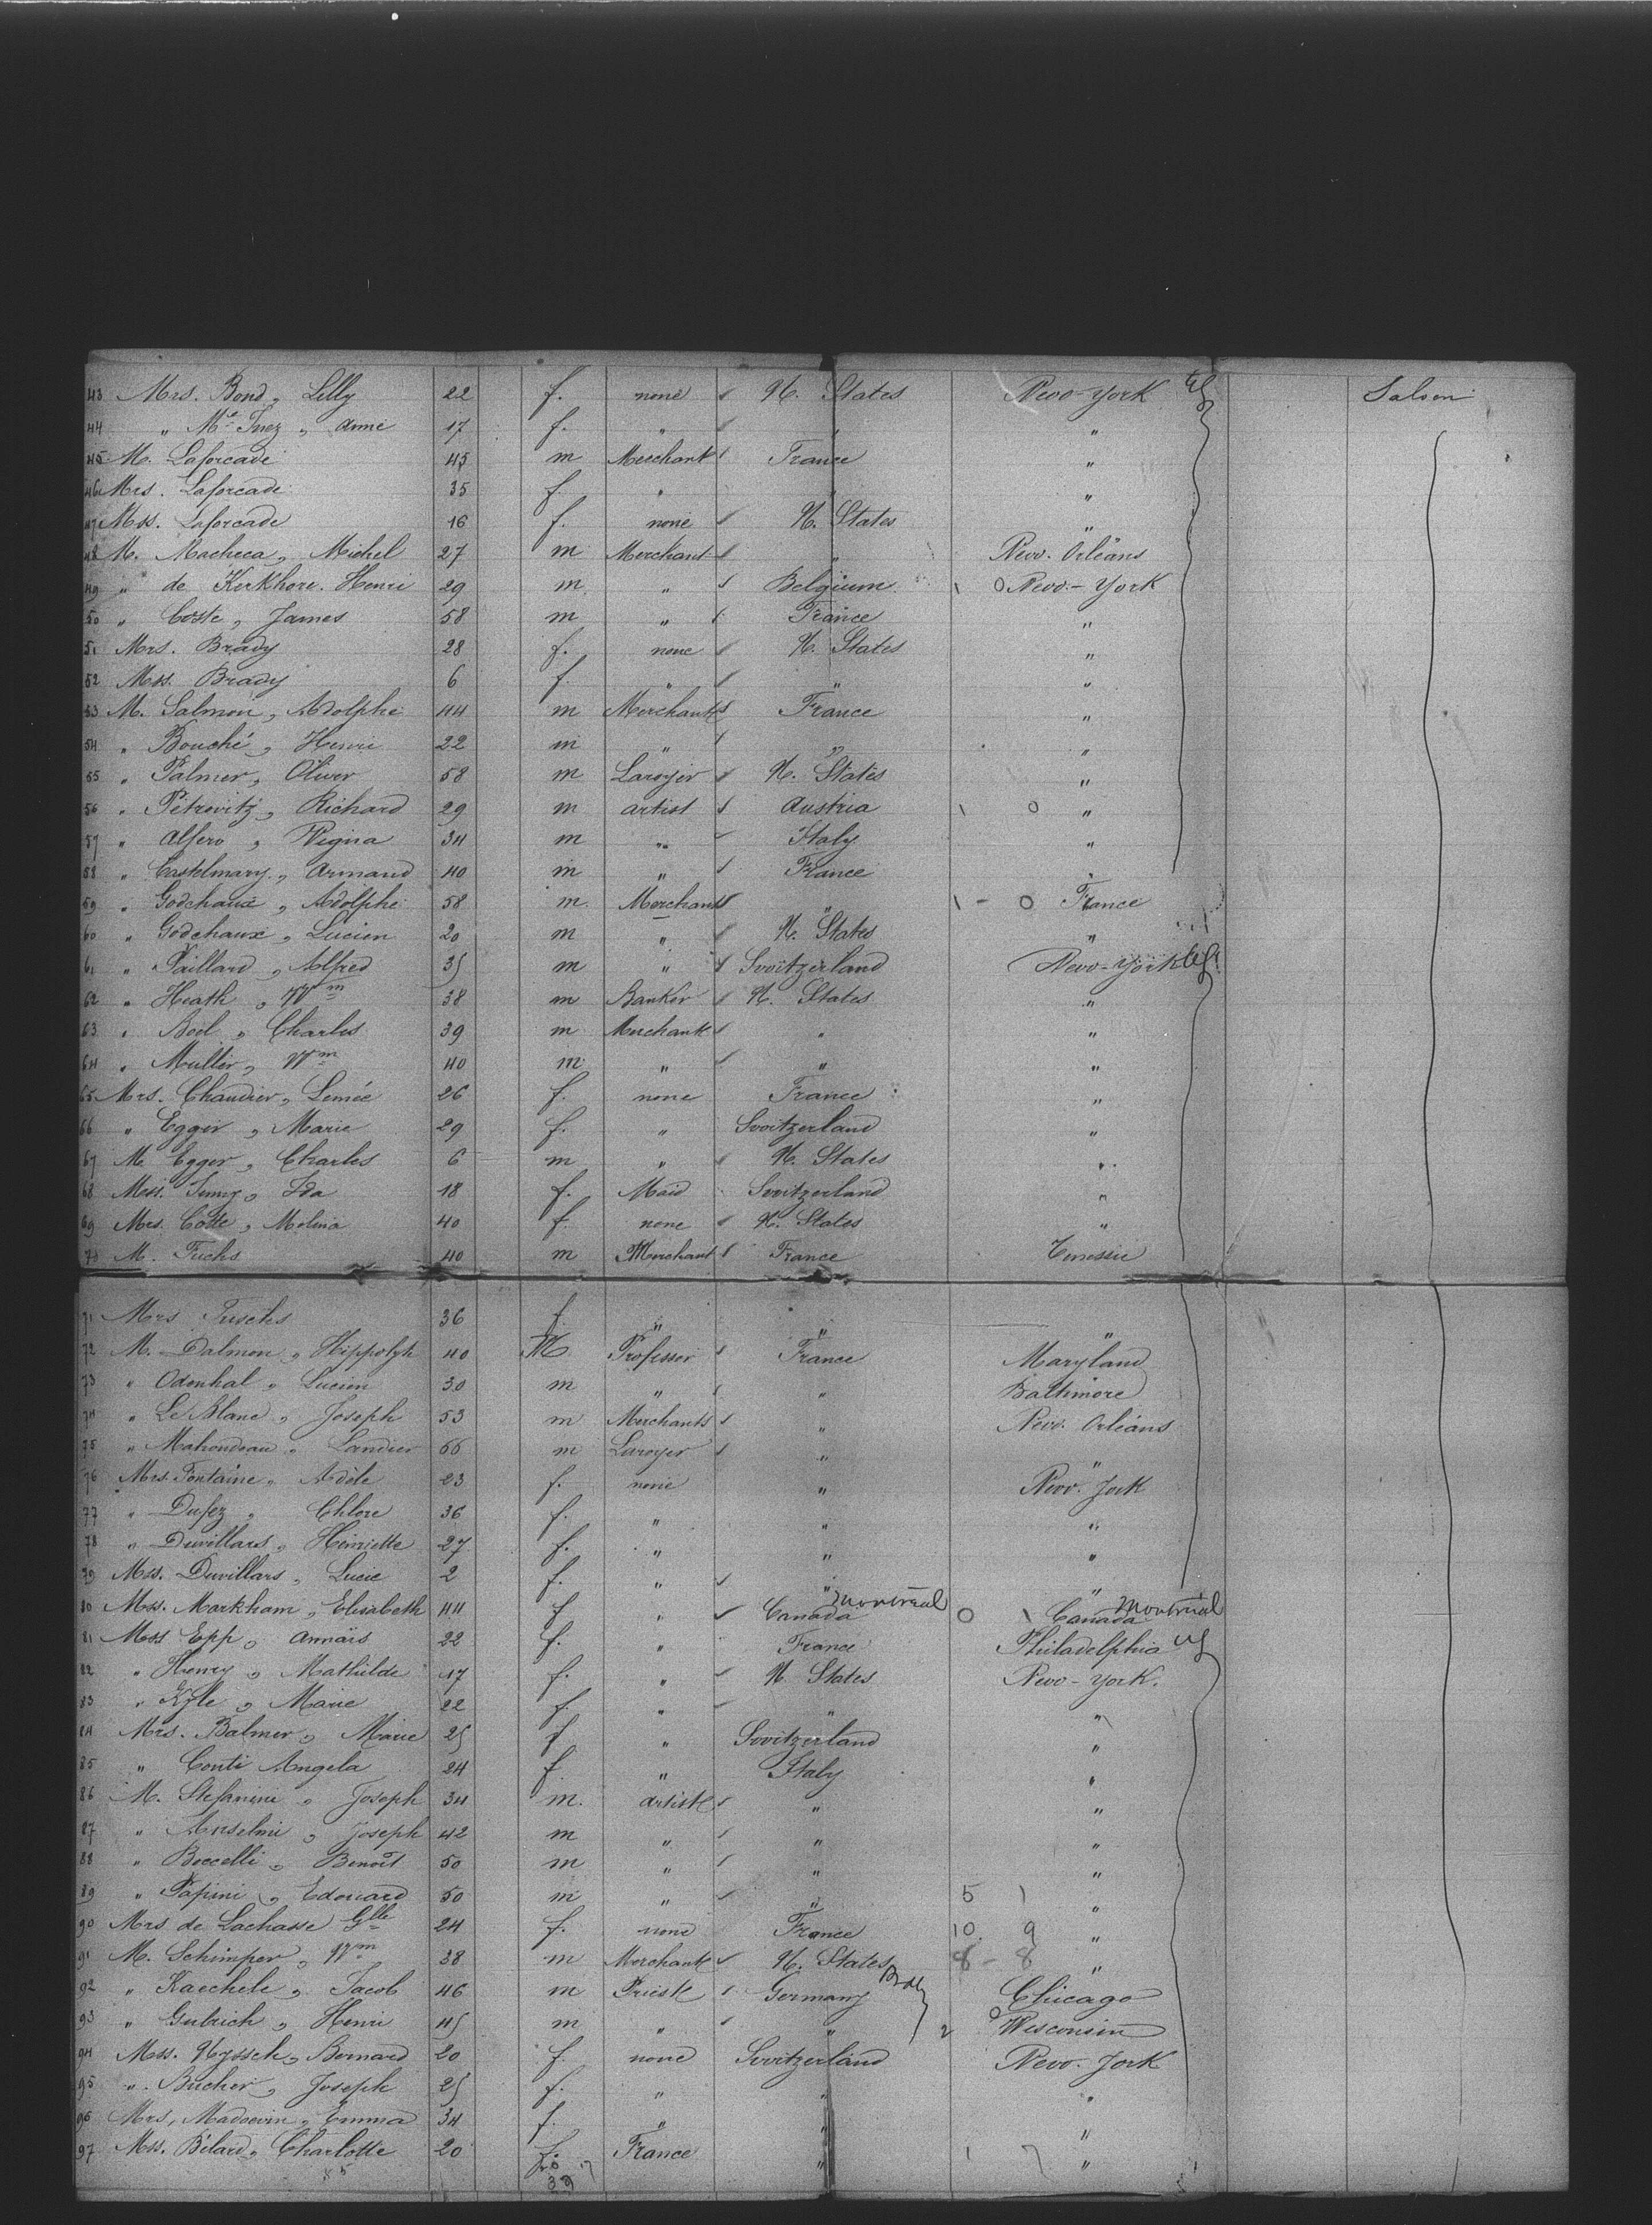 43 Mrs. Bond, Lilly 22 f. none U. States New-York Saloon
44 " Mc Inez, Anne 17 f. " " "
45 M. Laforcade 45 m Merchant France "
46 Mrs. Laforcade 35 f. " " "
47 Mss. Laforcade 16 f. none U. States "
48 M. Macheca, Michel 27 m Merchant " New. Orléans
49 " de Kerkhore. Henri 29 m. " Belgium 1 0 New-York
50 " Coste, James 58 m " France "
51 Mrs. Brady 28 f. none U. States "
52 Mss. Brady 6 f. " " "
53 M. Salmon, Adolphe 44 m Merchants France "
54 " Bouché, Henri 22 m " " "
55 " Palmer, Oliver 58 m Lawyer U. States "
56 " Petrovitz, Richard 29 m artist Austria 1 0 "
57 " Alfero, Regina 34 m " Italy "
58 " Castelmary, Armand 40 m " France "
59 " Godchaux, Adolphe 58 m. Merchants " 1 - 0 France
60 " Godchaux, Lucien 20 m " U. States "
61 " Paillard, Alfred 35 m " Switzerland New-York
62 " Heath, Wm 38 m Banker U. States "
63 " Boel, Charles 39 m Merchant " "
64 " Muller, Wm 40 m " " "
65 Mrs. Chaudier, Lemée 26 f. none France "
66 " Egger, Marie 29 f. " Switzerland "
67 M. Egger, Charles 6 m " U. States "
68 Mss. Ida 18 f. Maid Switzerland "
69 Mrs. Cotte, Melina 40 f. none U. States "
70 M. Fuchs 40 m Merchant France Tenessie
71 Mrs Fuschs 36 f " " "
72 M. Dalmon, Hippolyte 40 M Professor France Maryland
73 " Odenhal, Lucien 30 m " " Baltimore
74 " Le Blanc, Joseph 53 m Merchants " New. Orléans
75 " Mahoudeau, Landier 66 m Lawyer " "
76 Mrs. Fontaine, Adèle 23 f. none " New. York
77 " Dufez, Chlore 36 f. " " "
78 " Duvillars, Henriette 27 f. " " "
79 Mss. Duvillars, Lucie 2 f. " " "
80 Mss. Markham, Elisabeth 44 f " Canada Montreal 0 1 Canada Montreal
81 Mss Epp, Annaïs 22 f. " France Philadelphia
82 " Henry, Mathilde 17 f. " U. States New-York.
83 " Kyle, Marie 22 f. " " "
84 Mrs. Balmer, Marie 25 f " Switzerland "
85 " Conti Angela 24 f. " Italy "
86 M. Stefanini, Joseph 34 m. artist " "
87 " Anselmi, Joseph 42 m " " "
88 " Boccelli, Benoît 50 m " " "
89 " Papini, Edouard 50 m " " 5 1 "
90 Mrs de Lachasse Glle 24 f. none France 10 9 "
91 M. Schimper, Wm 38 m Merchant U. States 8 - 8 "
92 " Kaechele, Jacob 46 m Priest Germany Chicago
93 " Gulrich, Henri 45 m " " 2 0 Wisconsin
94 Mss. Bernard 20 f. none Switzerland New. York
95 " Bucher, Joseph 25 f. " " "
96 Mrs, Emma 34 f. " " "
97 Mss. Bélard, Charlotte 20 f. France " 1 7 "
39